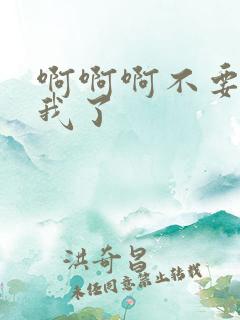 啊啊啊不要
我了
洪奇昌
未经同意禁止转载